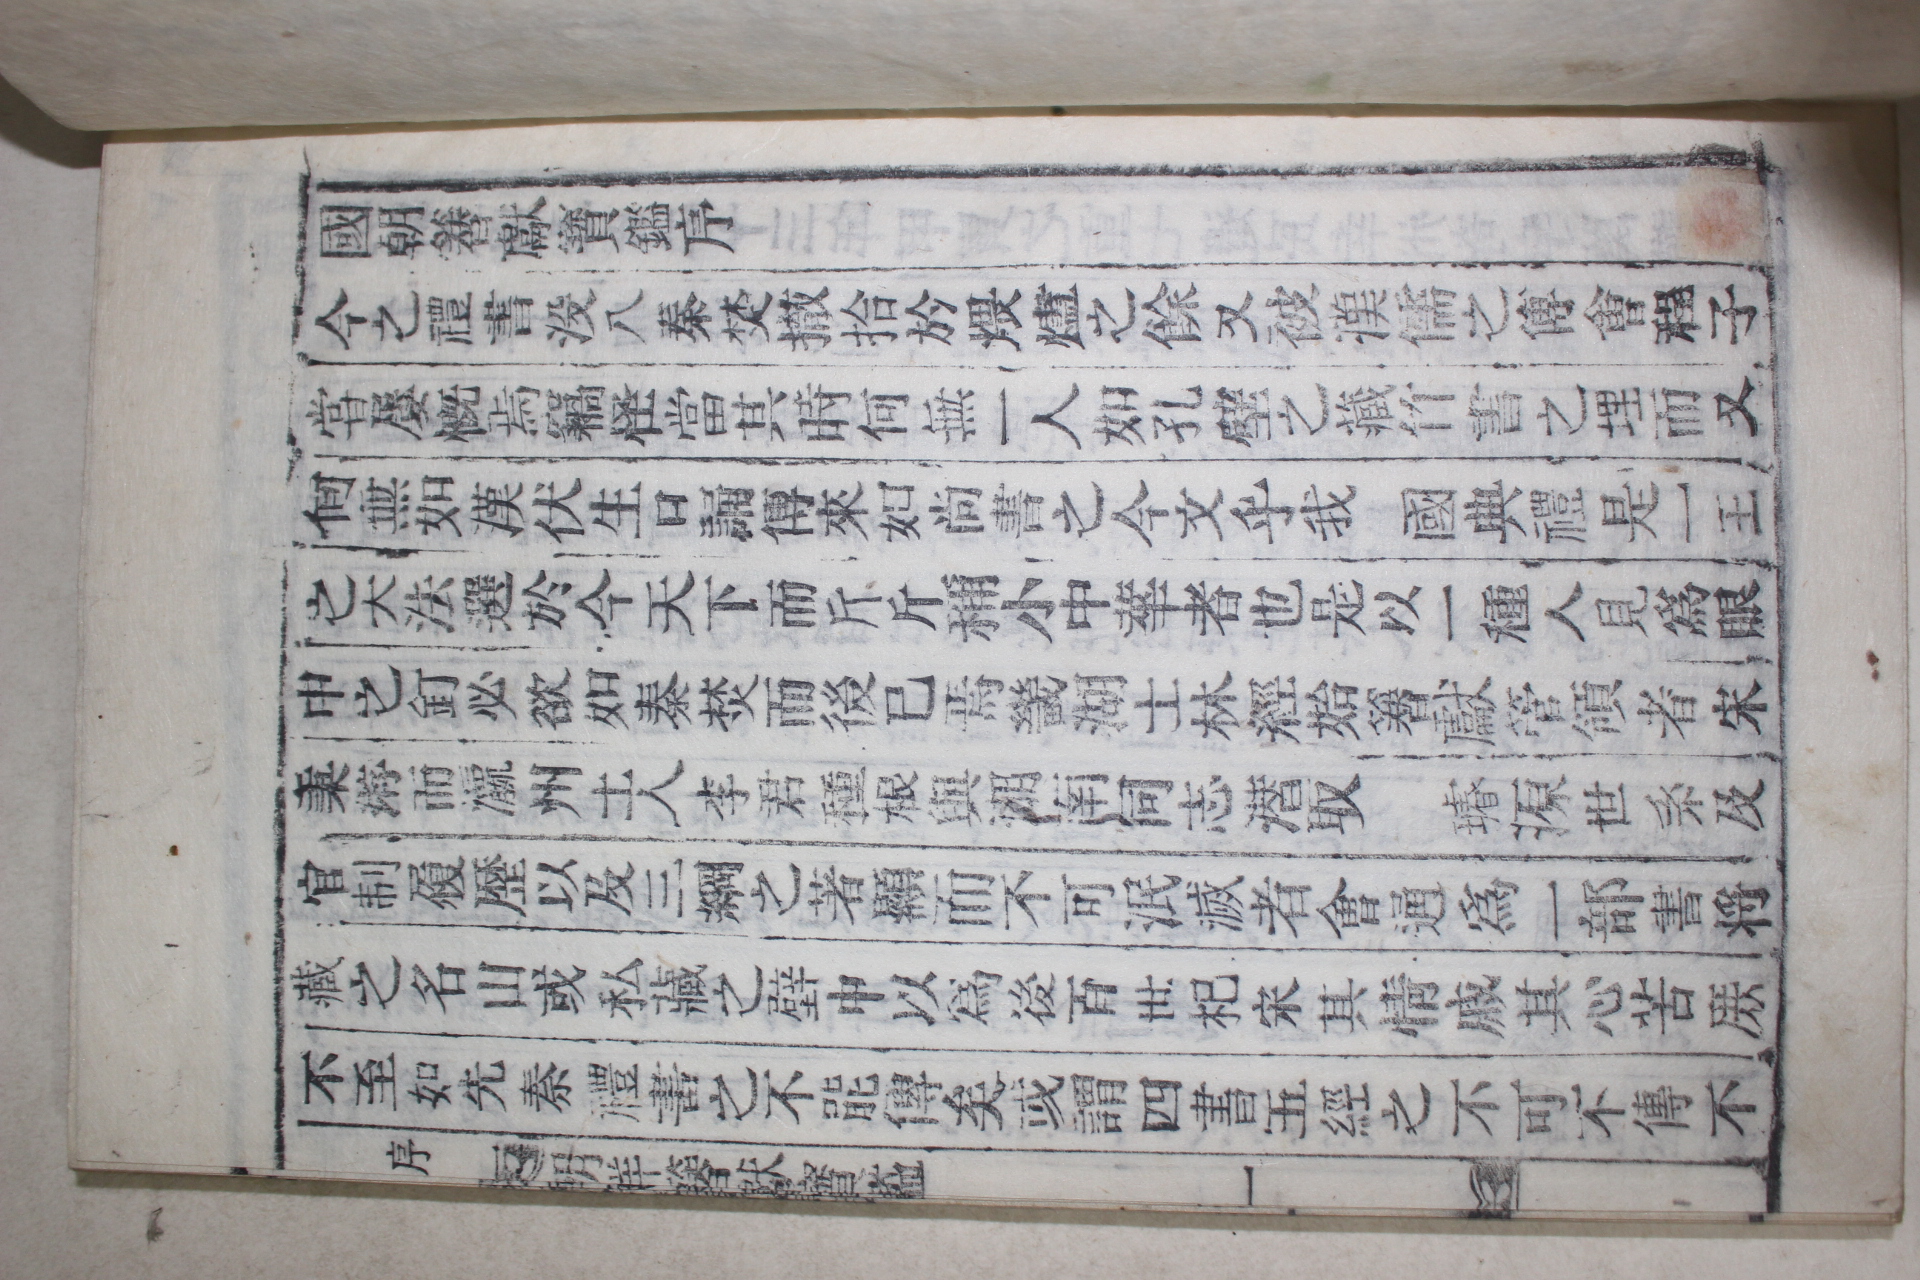 國朝簪獻寶鑑序
今之禮書沒入秦焚撤拾於煨燼之餘又被漢儒之傅會程子
嘗屢慨焉竊怪當其時何無一人如孔壁之藏竹書之埋而又
何無如漢伏生口誦傳來如尚書之今文乎我 國典禮是一王
之大法選於今天下而斤斤稱小中華者也是以一種人見爲眼
中之釘必欲如秦焚而後已焉畿湖士林經始簪獻管領者宋
秉 而瀛州士人李君種根與湖南同志潛取 璿源世系及
官制履歷以及三綱之著顯而不可泯滅者會通爲一部書將
藏之名山或私藏之壁中以爲後百世杞宋其情慽其心苦庶
不至如先秦禮書之不能傳矣或謂四書五經之不可不傳不
序 一